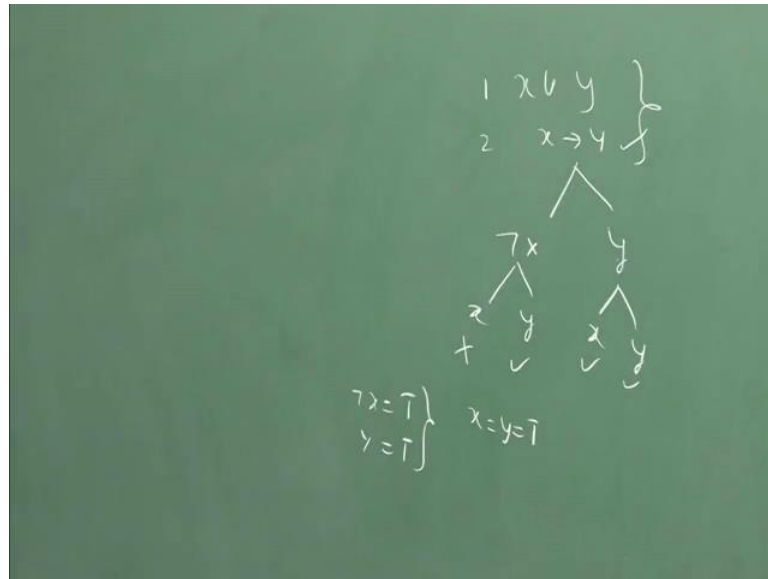 1 x ∨ y
2 x → y ✓
¬x y
x y x y
+ ✓ ✓ ✓
¬x = T
y = T
x = y = T